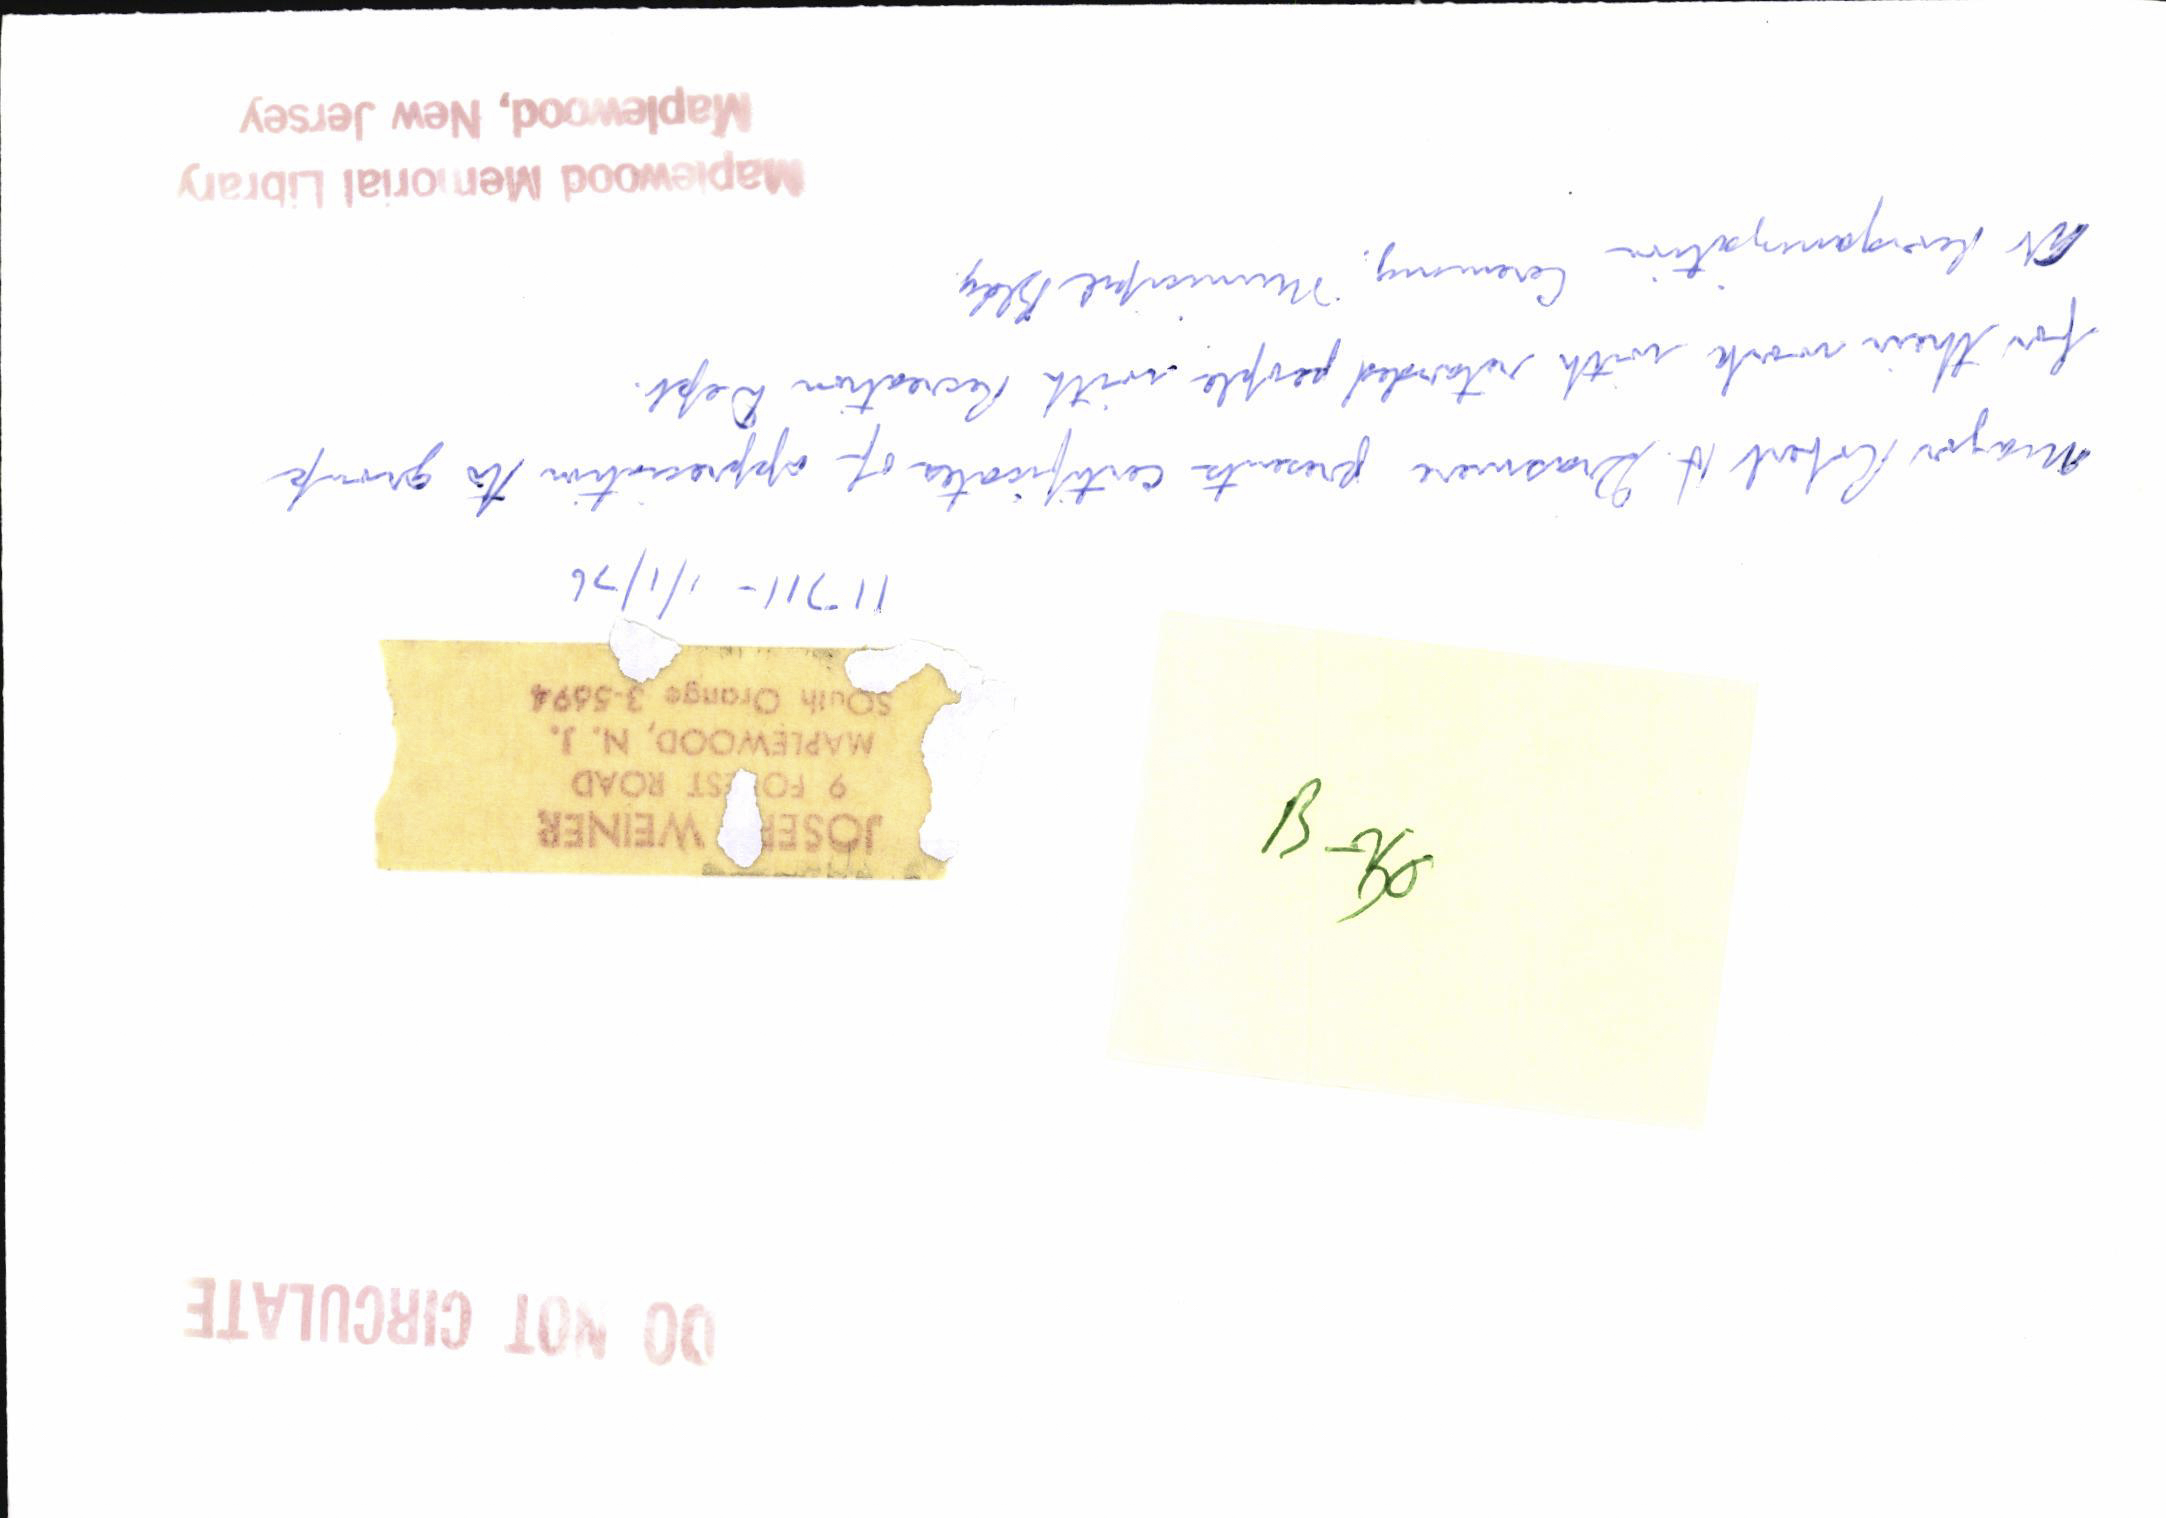 DO NOT CIRCULATE
JOSEPH WEINER
9 FOREST ROAD
MAPLEWOOD, N. J.
SOuth Orange 3-5694
11711 - 1/1/76
Mayor Robert H. Grasmere presents certificates of appreciation to group
for their work with retarded people with Recreation Dept.
At Reorganization Ceremony, Municipal Bldg
Maplewood Memorial Library
Maplewood, New Jersey